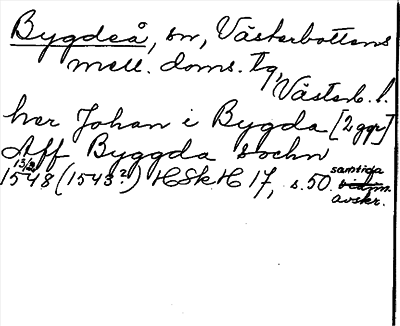 Bygdeå, sn, Västerbottens
mell. doms. tg,
Västerb. l.
her Johan i Bygda [2 ggr]
Aff Byggda sochn
13/2
1548 (1543?) HSkH 17, s. 50. samtida
vidim.
avskr.